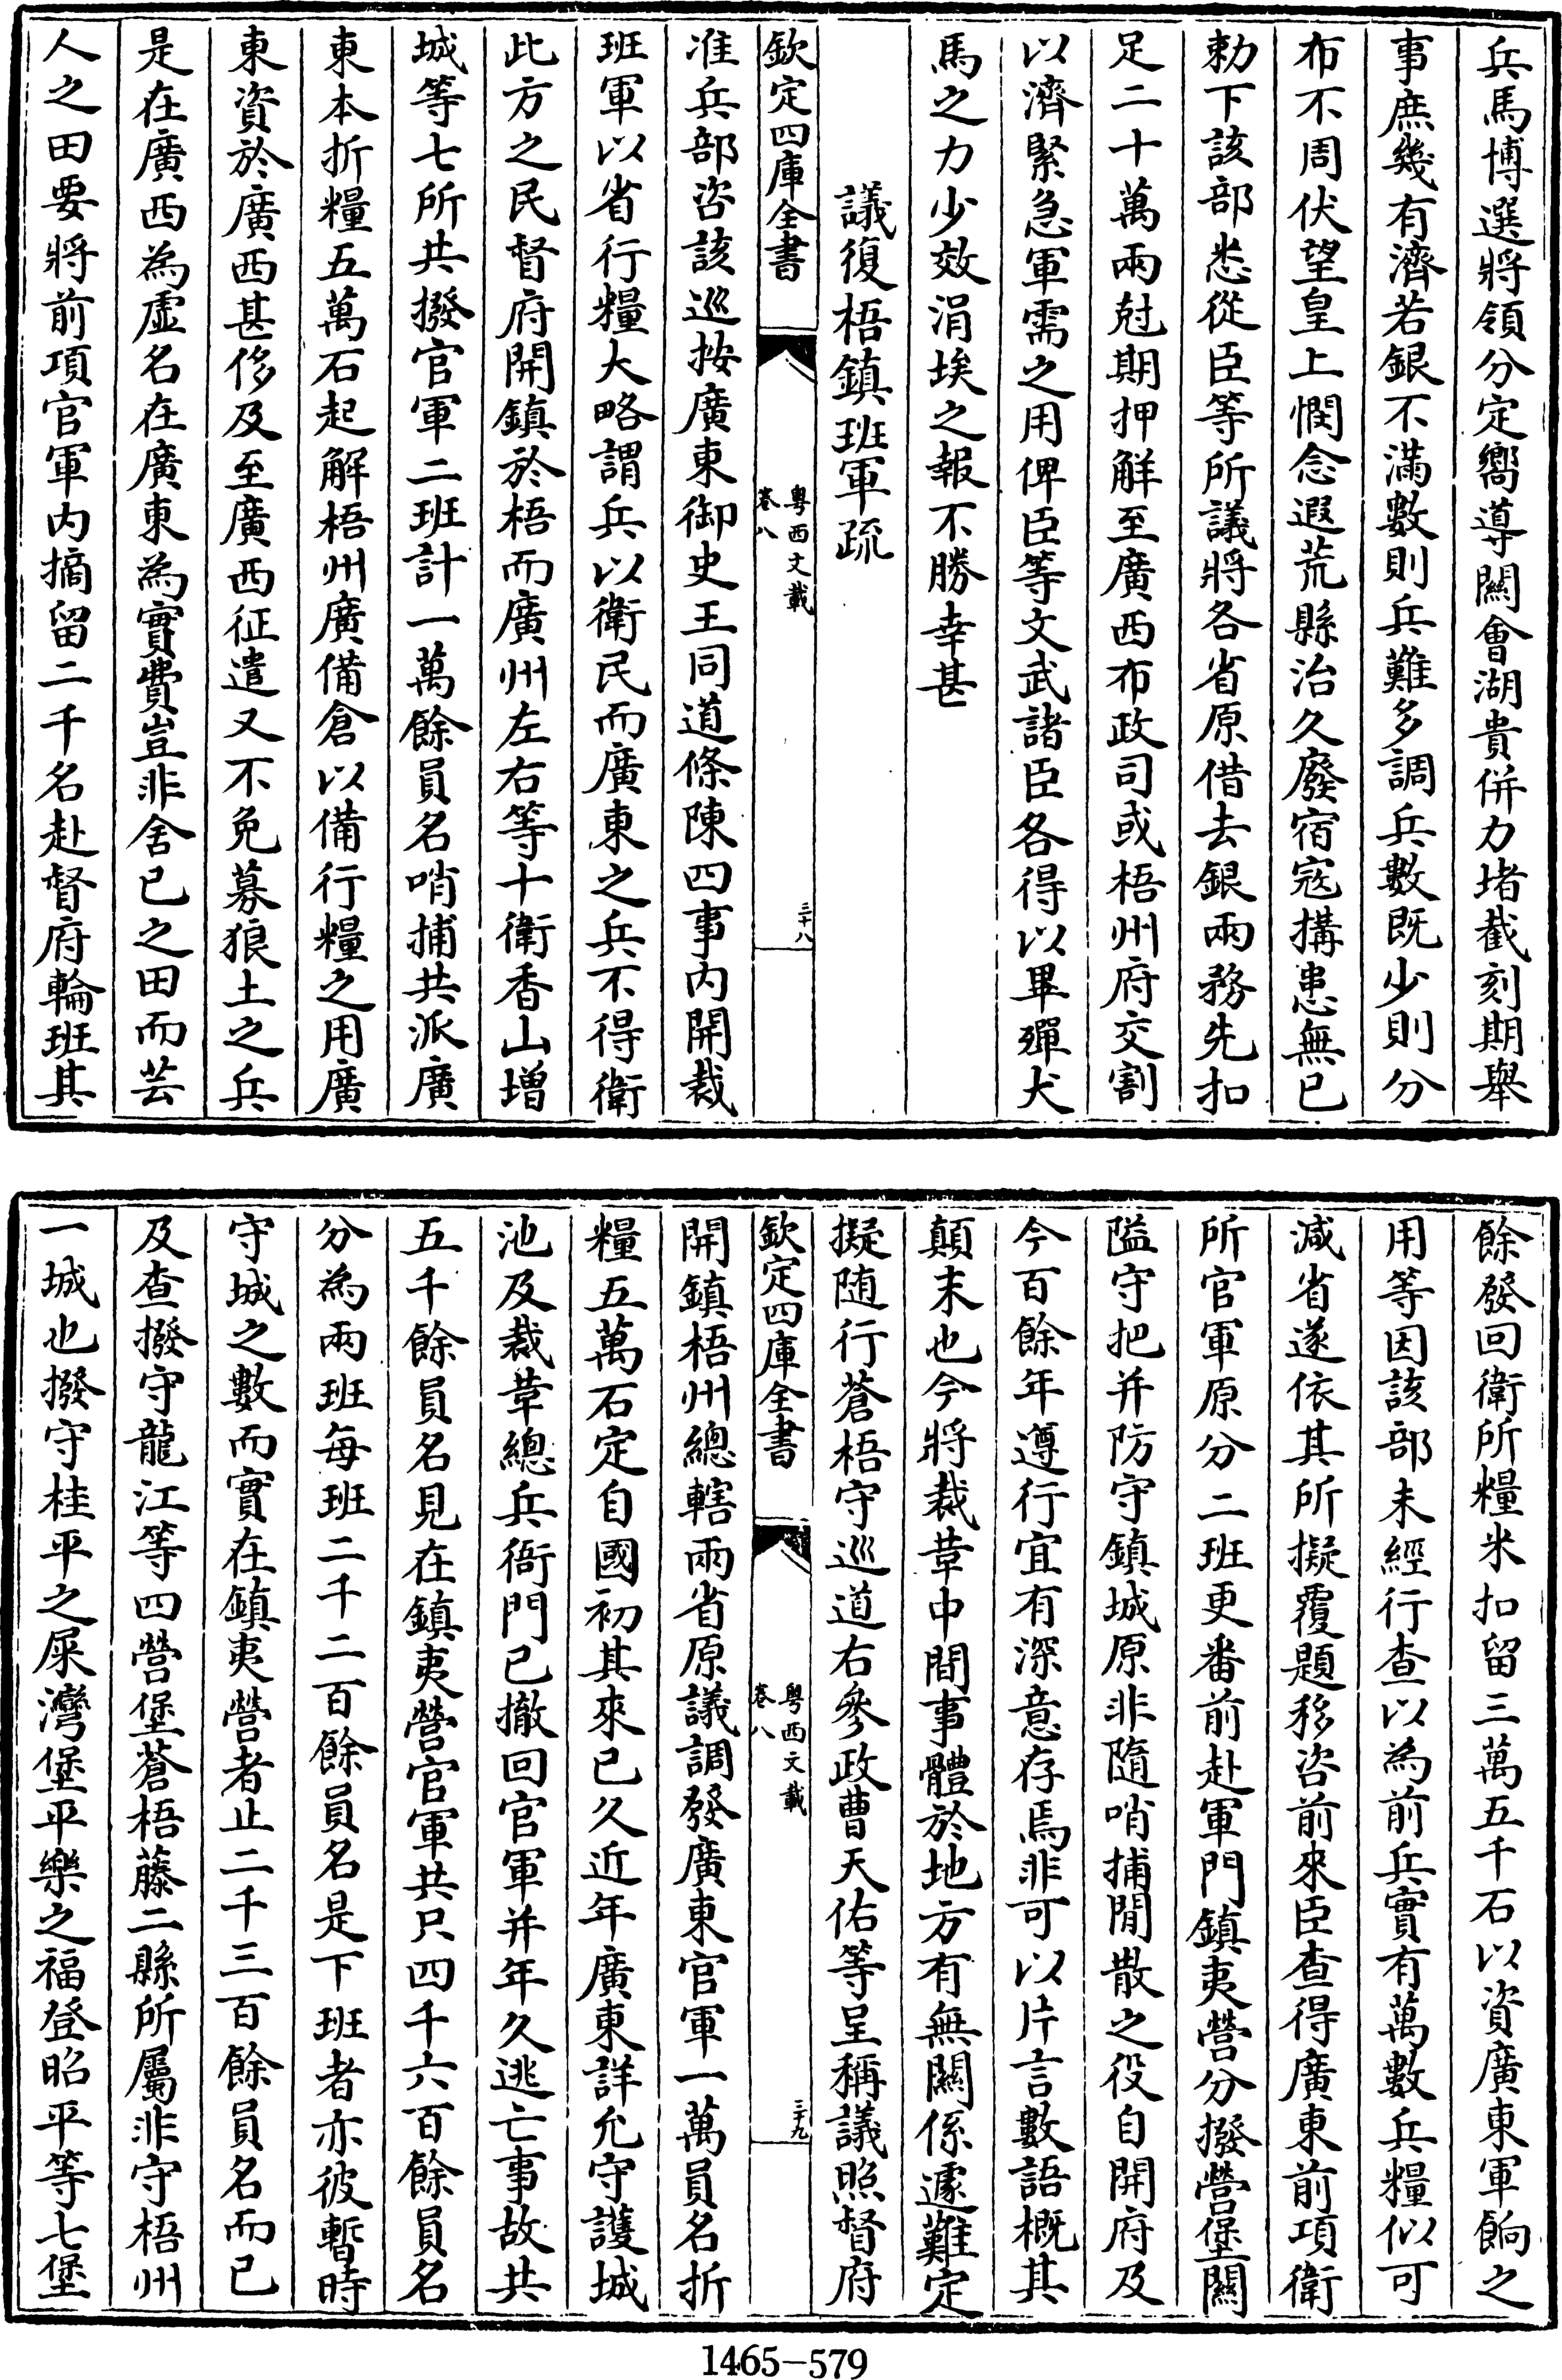 兵馬博選將領分定嚮導關會湖貴併力堵截刻期舉
事庶幾有濟若銀不滿數則兵難多調兵數既少則分
布不周伏望皇上憫念遐荒縣治久廢宿冦搆患無已
勅下該部悉從臣等所議將各省原借去銀兩務先扣
足二十萬兩尅期押解至廣西布政司或梧州府交割
以濟緊急軍需之用俾臣等文武諸臣各得以畢殫犬
馬之力少效涓埃之報不勝幸甚
議復梧鎮班軍疏
欽定四庫全書
粤西文載
卷八
三十八
准兵部咨該巡按廣東御史王同道條陳四事内開裁
班軍以省行糧大略謂兵以衛民而廣東之兵不得衛
此方之民督府開鎮於梧而廣州左右等十衛香山增
城等七所共撥官軍二班計一萬餘員名哨捕共派廣
東本折糧五萬石起解梧州廣備倉以備行糧之用廣
東資於廣西甚侈及至廣西征遣又不免募狼土之兵
是在廣西為虛名在廣東為實費豈非舍已之田而芸
人之田要將前項官軍内摘留二千名赴督府輪班其
餘發回衛所糧米扣留三萬五千石以資廣東軍餉之
用等因該部未經行查以為前兵實有萬數兵糧似可
減省遂依其所擬覆題移咨前來臣查得廣東前項衛
所官軍原分二班更番前赴軍門鎮夷營分撥營堡關
隘守把并防守鎮城原非隨哨捕閒散之役自開府及
今百餘年遵行宜有深意存焉非可以片言數語概其
顛末也今將裁革中間事體於地方有無關係遽難定
擬随行蒼梧守巡道右參政曹天佑等呈稱議照督府
欽定四庫全書
粤西文載
卷八
三十九
開鎮梧州總轄兩省原議調發廣東官軍一萬員名折
糧五萬石定自國初其來已久近年廣東詳允守護城
池及裁革總兵衙門已撤回官軍并年久逃亡事故共
五千餘員名見在鎮夷營官軍共只四千六百餘員名
分為兩班每班二千二百餘員名是下班者亦彼暫時
守城之數而實在鎮夷營者止二千三百餘員名而已
及查撥守龍江等四營堡蒼梧藤二縣所屬非守梧州
一城也撥守桂平之屎灣堡平樂之福登昭平等七堡
1465-579